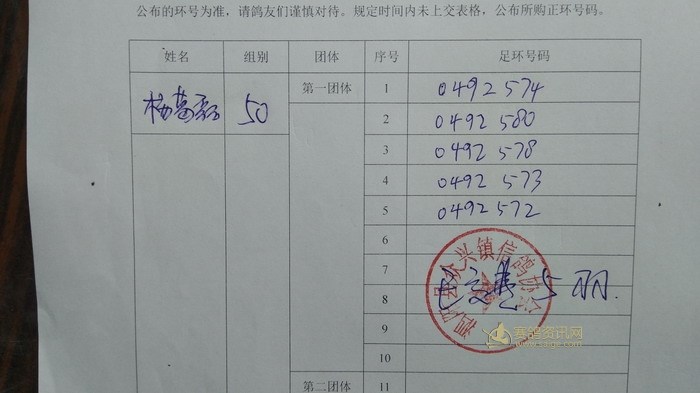 公布的环号为准，请鸽友们谨慎对待。规定时间内未上交表格，公布所购正环号码。
姓名 组别 团体 序号 足环号码
杨 50 第一团体 1 0492574
2 0492580
3 0492578
4 0492573
5 0492572
6
7
已交费5羽.
8
9
10
第二团体 11
兴镇信鸽协会
赛鸽资讯网